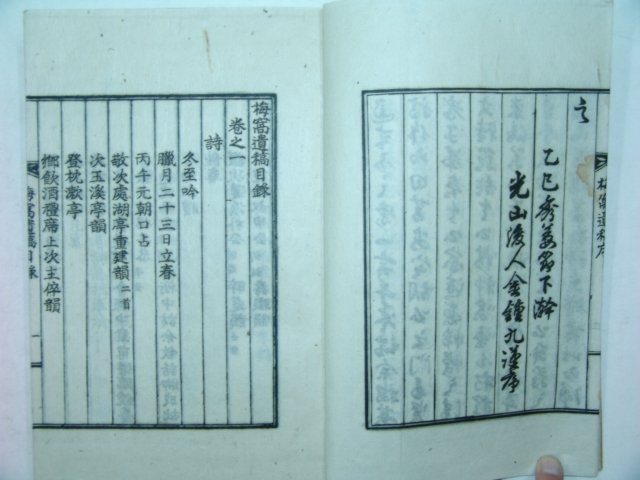 梅窩遺稿序
之
乙巳秀葽節下澣
光山後人金鍾九謹序
梅窩遺稿目錄
卷之一
詩
冬至吟
臘月二十三日立春
丙午元朝口占
敬次處湖亭重建韻 二首
次玉溪亭韻
登枕漱亭
鄉飮酒禮席上次主倅韻
梅窩遺稿目錄
一